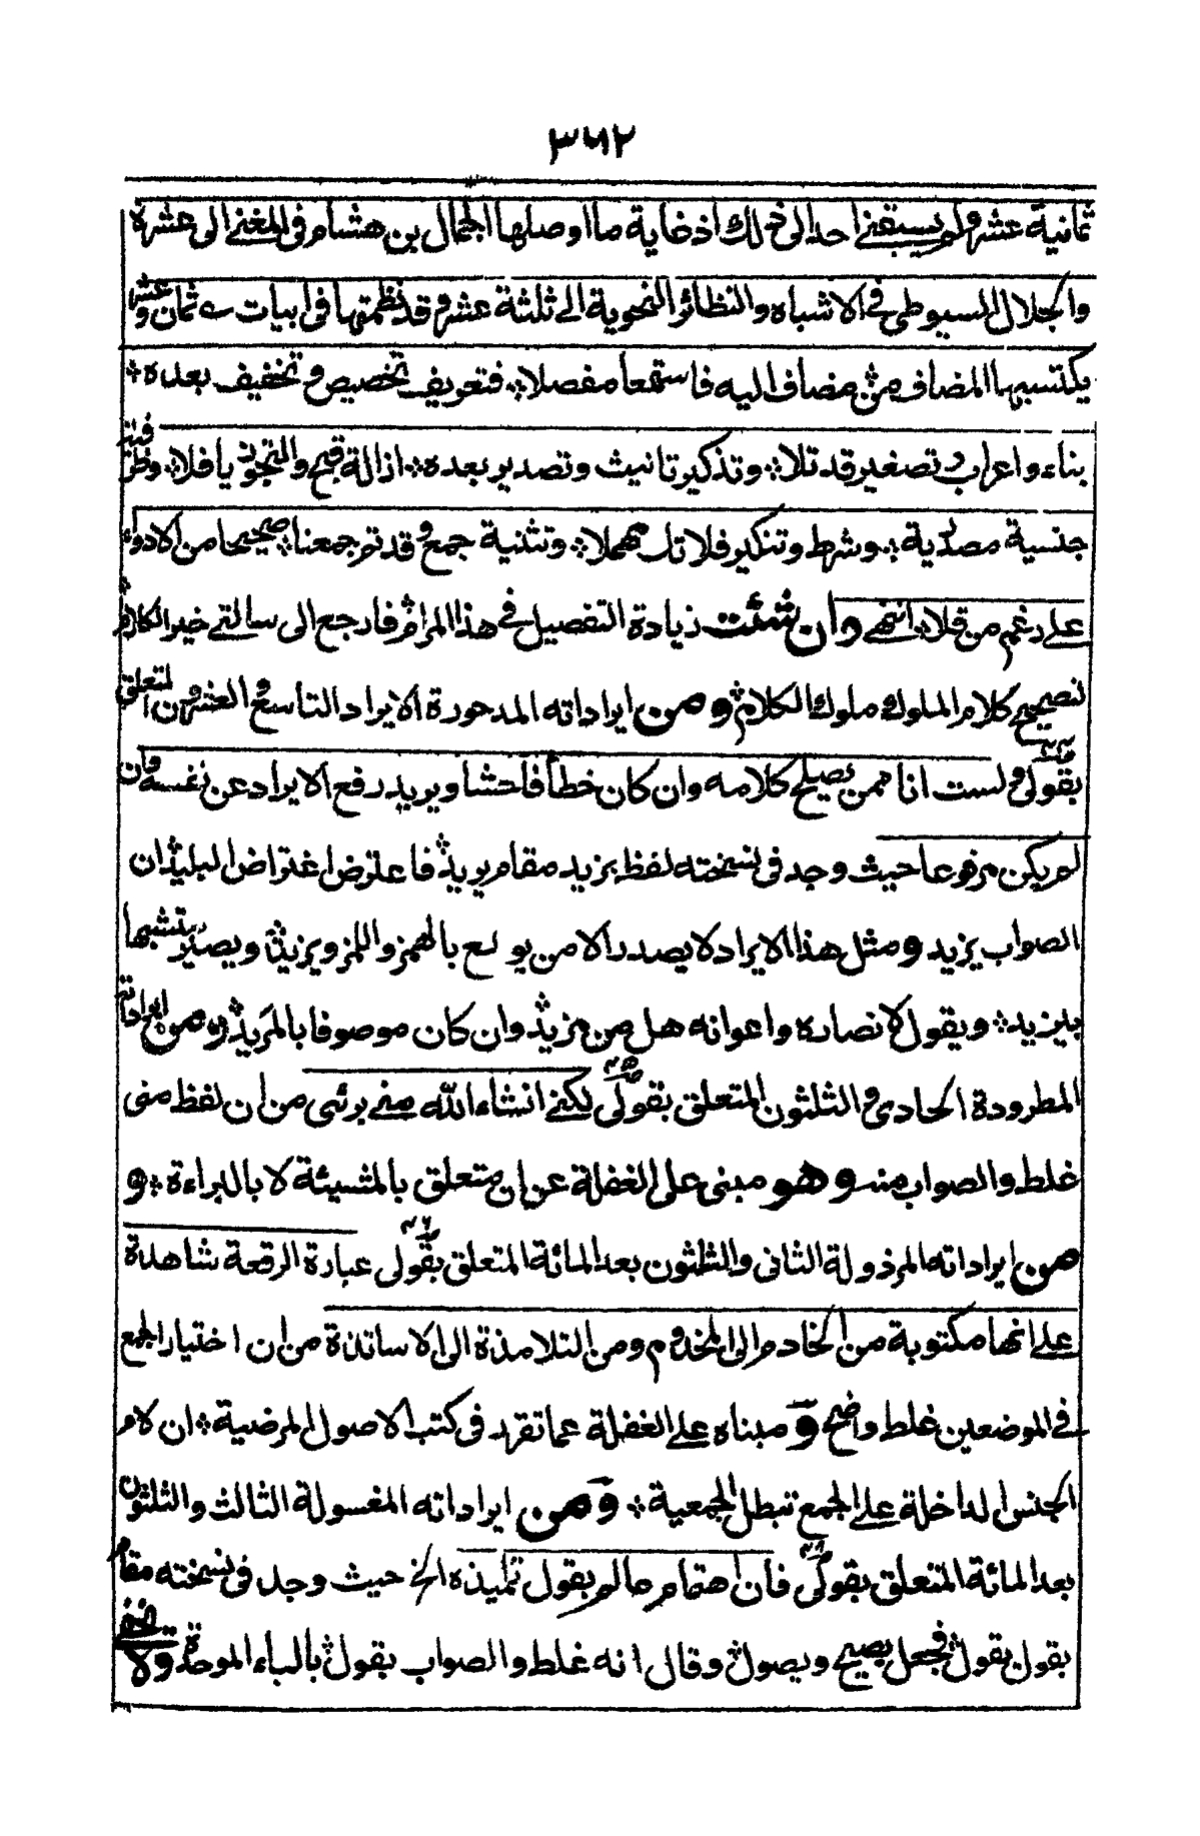 ٣٦٢
ثمانية عشر ولم يسبقني احد الى ذلك اذ غاية ما اوصلها الجمال بن هشام في المغني الى عشرة
والجلال السيوطي في الاشباه والنظائر النحوية الى ثلثة عشر وقد نظمتها في ابيات ے ثمان وعشر
يكتسبها المضاف من مضاف اليه فاستمعا مفصلا فتعريف تخصيص وتخفيف بعده
بناء واعراب وتصغير قد تلا وتذكير تانيث وتصدير بعده ازالة قبح والتجوز يا فلا وظرفية
جنسية مصدرية وشرط وتنكير فلا تك مهملا وتثنية جمع وقد تم جمعنا صحيحا من الادواء
على رغم من قلا انتهى وان شئت زيادة التفصيل في هذا المرام فارجع الى سالتي خير الكلام
لتصحيح كلام الملوك ملوك الكلام ومن ايراداته المدحورة الايراد التاسع والعشرون المتعلق
بقولي ولست انا ممن يصلح كلامه وان كان خطأ فاحشا ويريد رفع الايراد عن نفسه وان
لم يكن مرفوعا حيث وجد في نسخته لفظ بزيد مقام يريد فاعترض اعتراض البليد ان
الصواب يزيد ومثل هذا الايراد لا يصدر الا من يولع بالهمز واللمز ويزيد ويصير متشبها
بيزيد ويقول لانصاره واعوانه هل من مزيد وان كان موصوفا بالمريد ومن ايراداته
المطرودة الحادي والثلثون المتعلق بقولي ٢٥ لكني انشاء الله مني برئى من ان لفظ منى
غلط والصواب منه وهو مبنى على الغفلة عن ان متعلق بالمشيئة لا بالبراءة و
من ايراداته المرذولة الثاني والثلثون بعد المائة المتعلق بقولي ٢٦ عبارة الرقعة شاهدة
على انها مكتوبة من الخادم الى المخدوم ومن التلامذة الى الاساتذة من ان اختيار الجمع
في الموضعين غلط واضح و مبناه على الغفلة عما تقرر في كتب الاصول المرضية ان لام
الجنس الداخلة على الجمع تبطل الجمعية ومن ايراداته المغسولة الثالث والثلثون
بعد المائة المتعلق بقولي ٢٨ فان اهتمام ما لم يقول تلميذه الخ حيث وجد في نسخته مقام
بقول يقول فجعل يصيح ويصول وقال انه غلط والصواب بقول بالباء الموحدة ولا